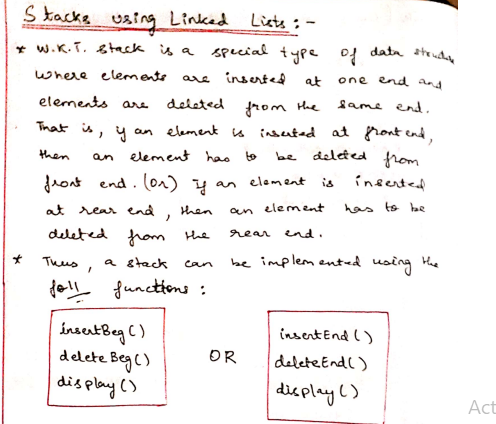 Stacks using Linked Lists :-
* W.K.T. stack is a special type of data structure
where elements are inserted at one end and
elements are deleted from the same end.
That is, if an element is inserted at front end,
then an element has to be deleted from
front end. (Or) If an element is inserted
at rear end, then an element has to be
deleted from the rear end.
* Thus, a stack can be implemented using the
foll functions :
insertBeg()
deleteBeg()
display()
OR
insertEnd()
deleteEnd()
display()
Act